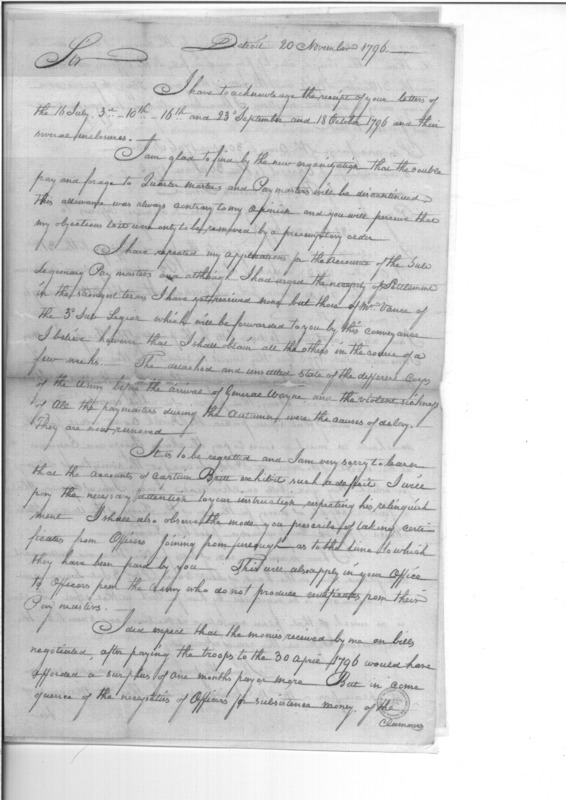 Detroit 20 November 1796
Sir
I have to acknowledge the receipt of your letters of
the 16 July, 3rd 10th 16th and 23d September and 18 October 1796 and their
several inclosures.
I am glad to find by the new organization that the double
pay and forage to Quarter masters and Paymasters will be discontinued
this allowance was always contrary to my opinion and you will perceive that
my objections to it were only to be removed by a preemptory order
I have repeated my applications for the Accounts of the Sub
Legionary Pay masters and although I had urged the necessity of Settlement
in the strongest terms I have not received none but those of Mr. Vance of
the 3d Sub Legion which will be forwarded to you by this conveyance
I believe however that I shall obtain all the others in the course of a
few weeks. The detached and unsettled state of the different Corps
of the Army before the arrival of General Wayne and the violent sickness
of All the paymasters during the Autumn were the causes of delay.
They are now removed
It is to be regretted and I am very sorry to learn
that the accounts of Captain Britt exhibit such a deficit I will
pay the necessary attention to your instruction respecting his relinquish
ment I shall also observe the mode you prescribe of taking certi
ficates from Officers joining from furlough as to the time to which
they have been paid by you This will also apply in your Office
to Officers from the Army who do not produce certificates from their
Pay masters.
I did expect that the monies received by me on bills
negotiated, after paying the troops to the 30 April 1796 would have
afforded a surplus of one months pay or more But in conse
quence of the necessities of Officers for subsistence money, of the
Clammours